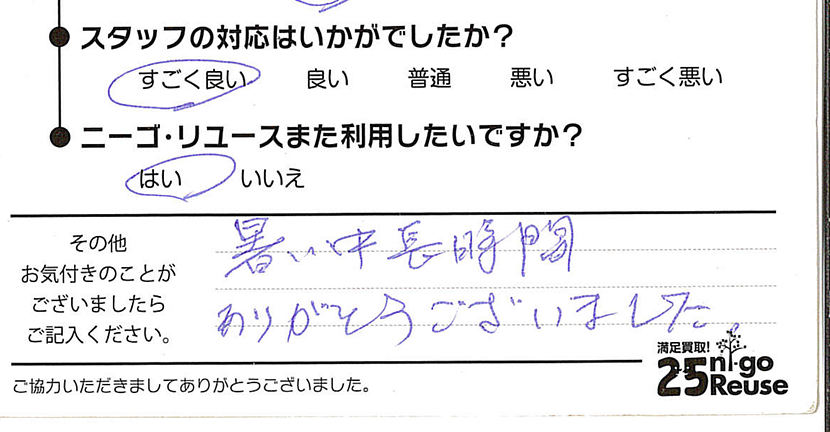 スタッフの対応はいかがでしたか？
すごく良い 良い 普通 悪い すごく悪い
ニーゴ・リユースまた利用したいですか？
はい いいえ
その他
お気付きのことが
ございましたら
ご記入ください。
暑い中長時間
ありがとうございました。
満足買取!
25 ni-go
Reuse
ご協力いただきましてありがとうございました。